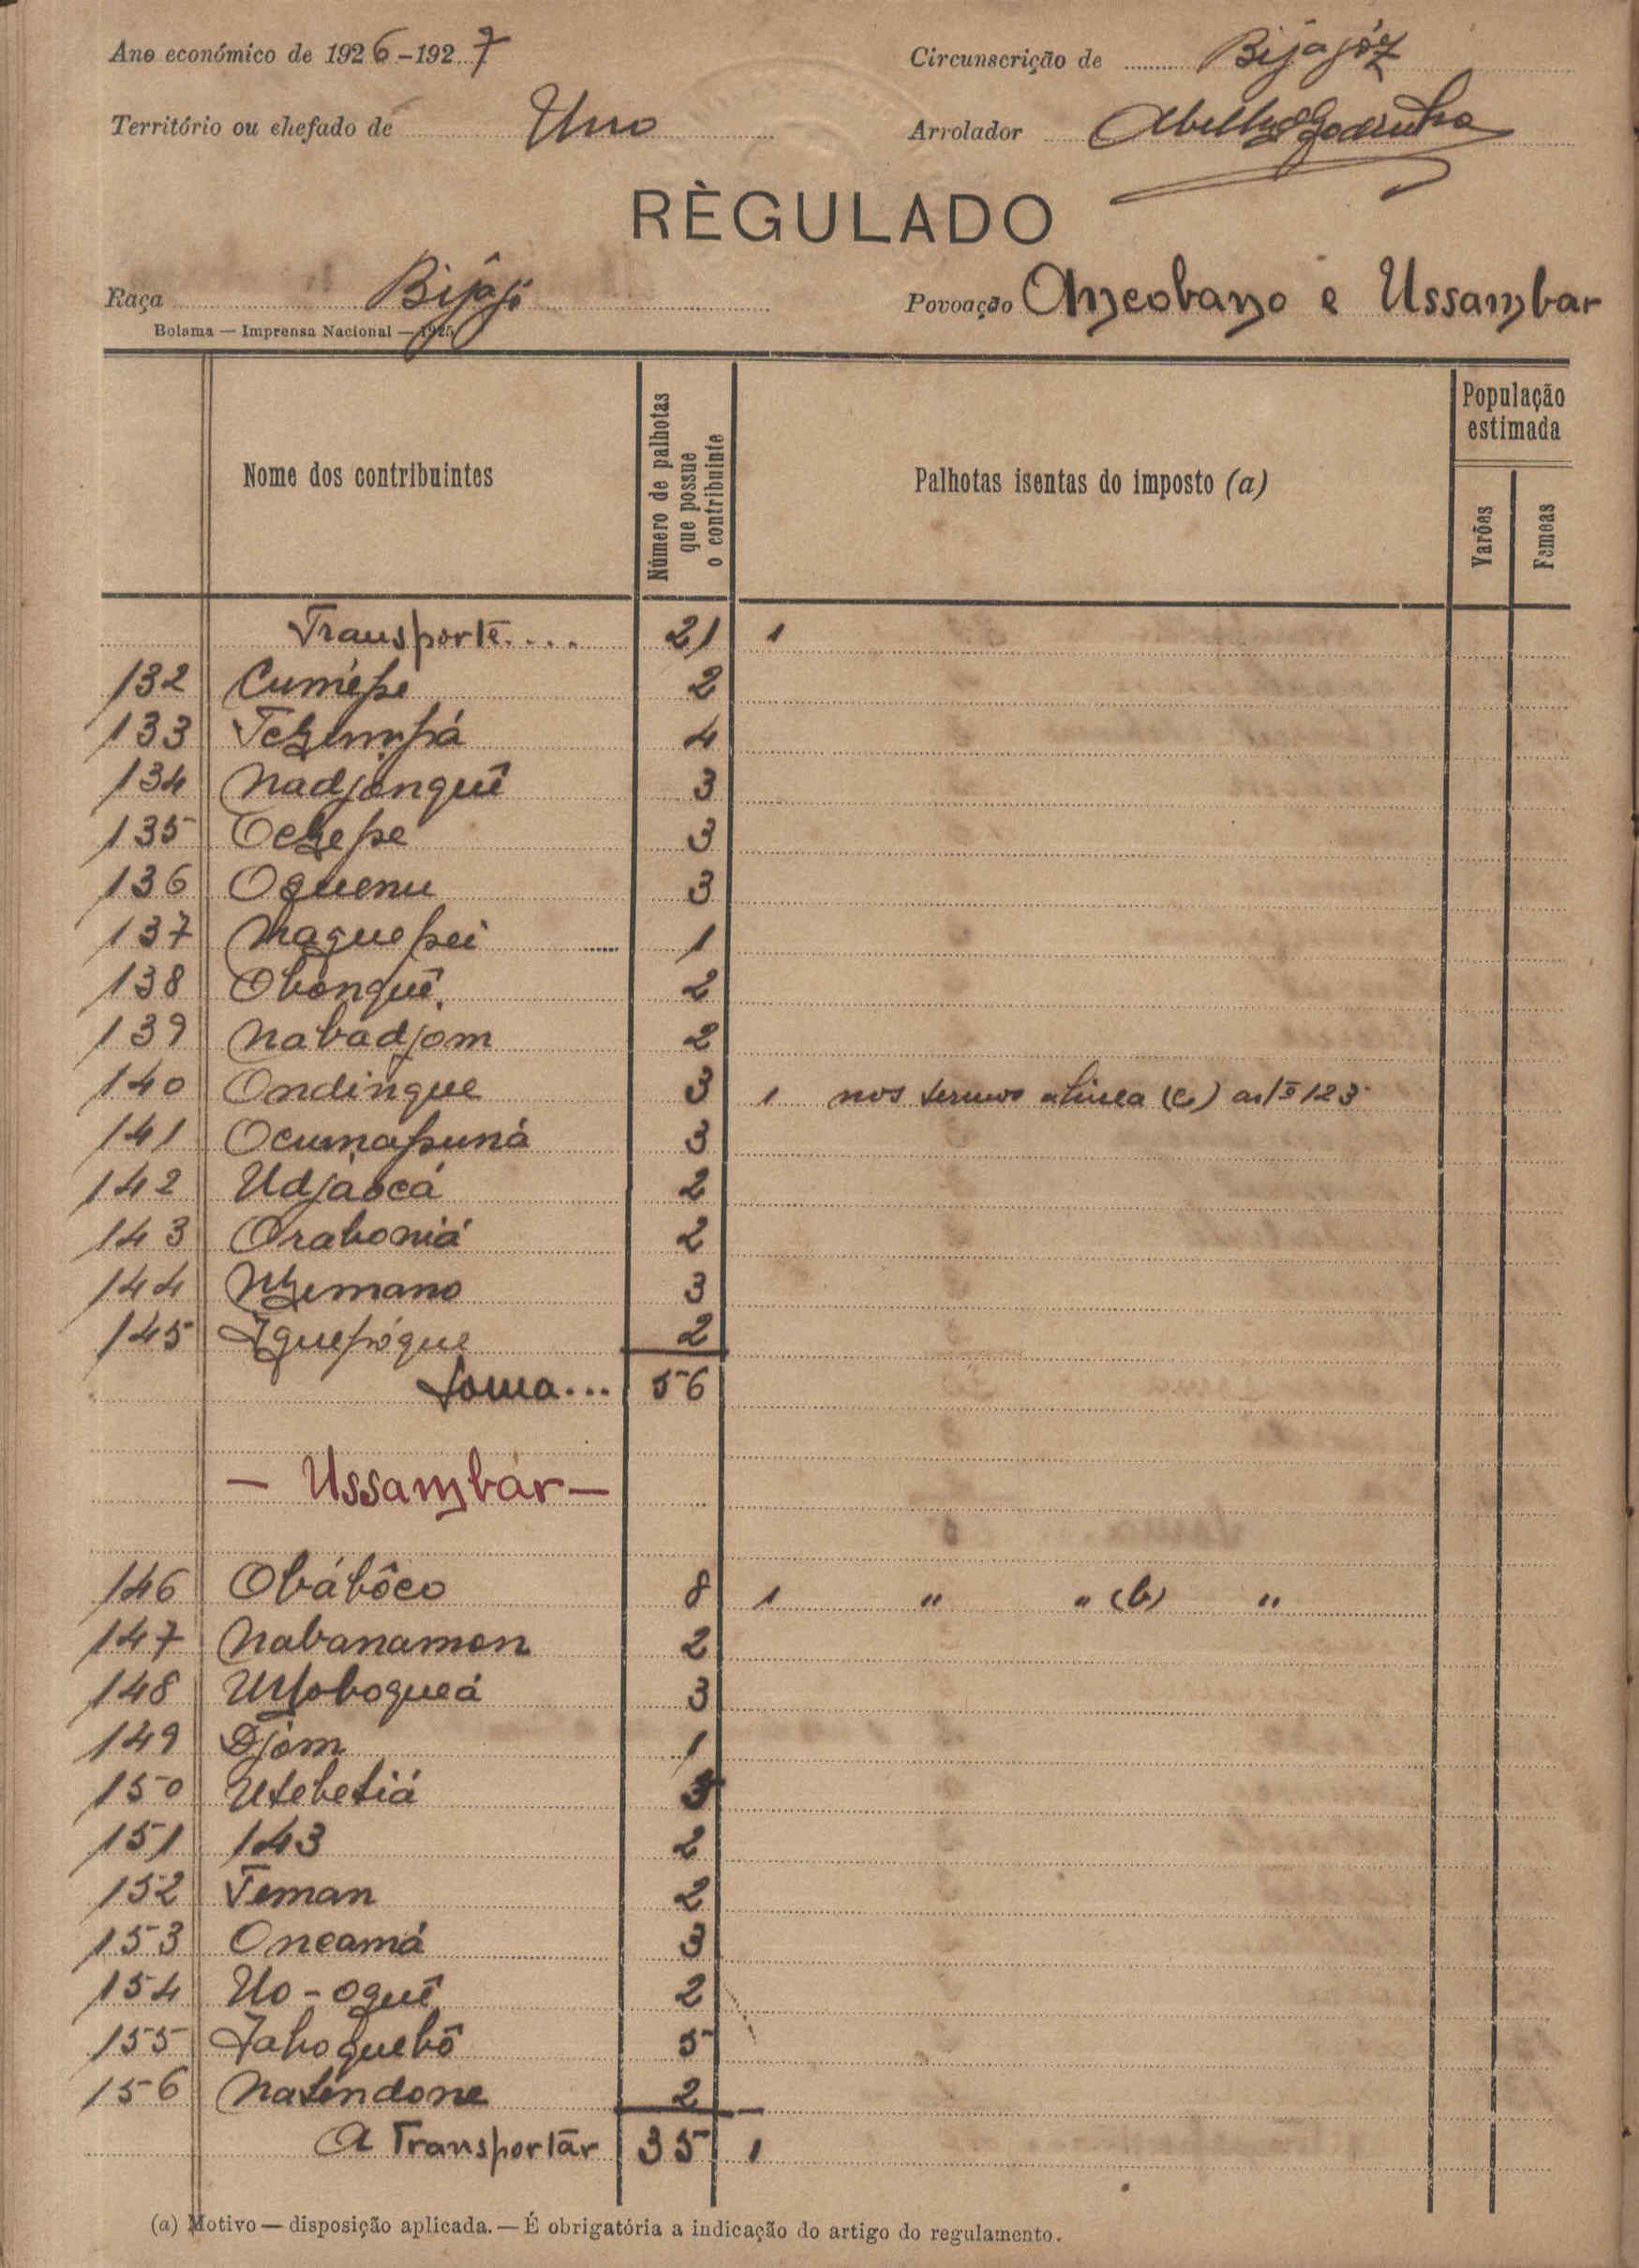 Ano económico de 1926-1927
Circunscrição de Bijagóz
Território ou chefado de Uno
Arrolador Godinho
RÈGULADO
Raça Bijagó
Povoação Ancobano e Ussambar
Bolama — Imprensa Nacional — 1925
Nome dos contribuintes
Número de palhotas que possue o contribuinte
Palhotas isentas do imposto (a)
População estimada
Varões
Femeas
Transporte.... 21 1
132 Cumépe 2
133 4
134 Nadjonguê 3
135 3
136 Oguenu 3
137 Naguepei 1
138 Obonguê 2
139 Nabadjom 2
140 Ondingue 3 1 nos termos alinea (c) artº 123
141 Ocumapuná 3
142 Udjaocá 2
143 Oraboniá 2
144 3
145 Iguepógue 2
Soma... 56
— Ussambár —
146 Obábôco 8 1 " " (b) "
147 Nabanamon 2
148 3
149 Djom 1
150 Utebetiá 5
151 143 2
152 Teman 2
153 Oncamá 3
154 Uo-oguê 2
155 Jahoguebô 5
156 Natendone 2
A Transportar 35 1
(a) Motivo — disposição aplicada. — É obrigatória a indicação do artigo do regulamento.